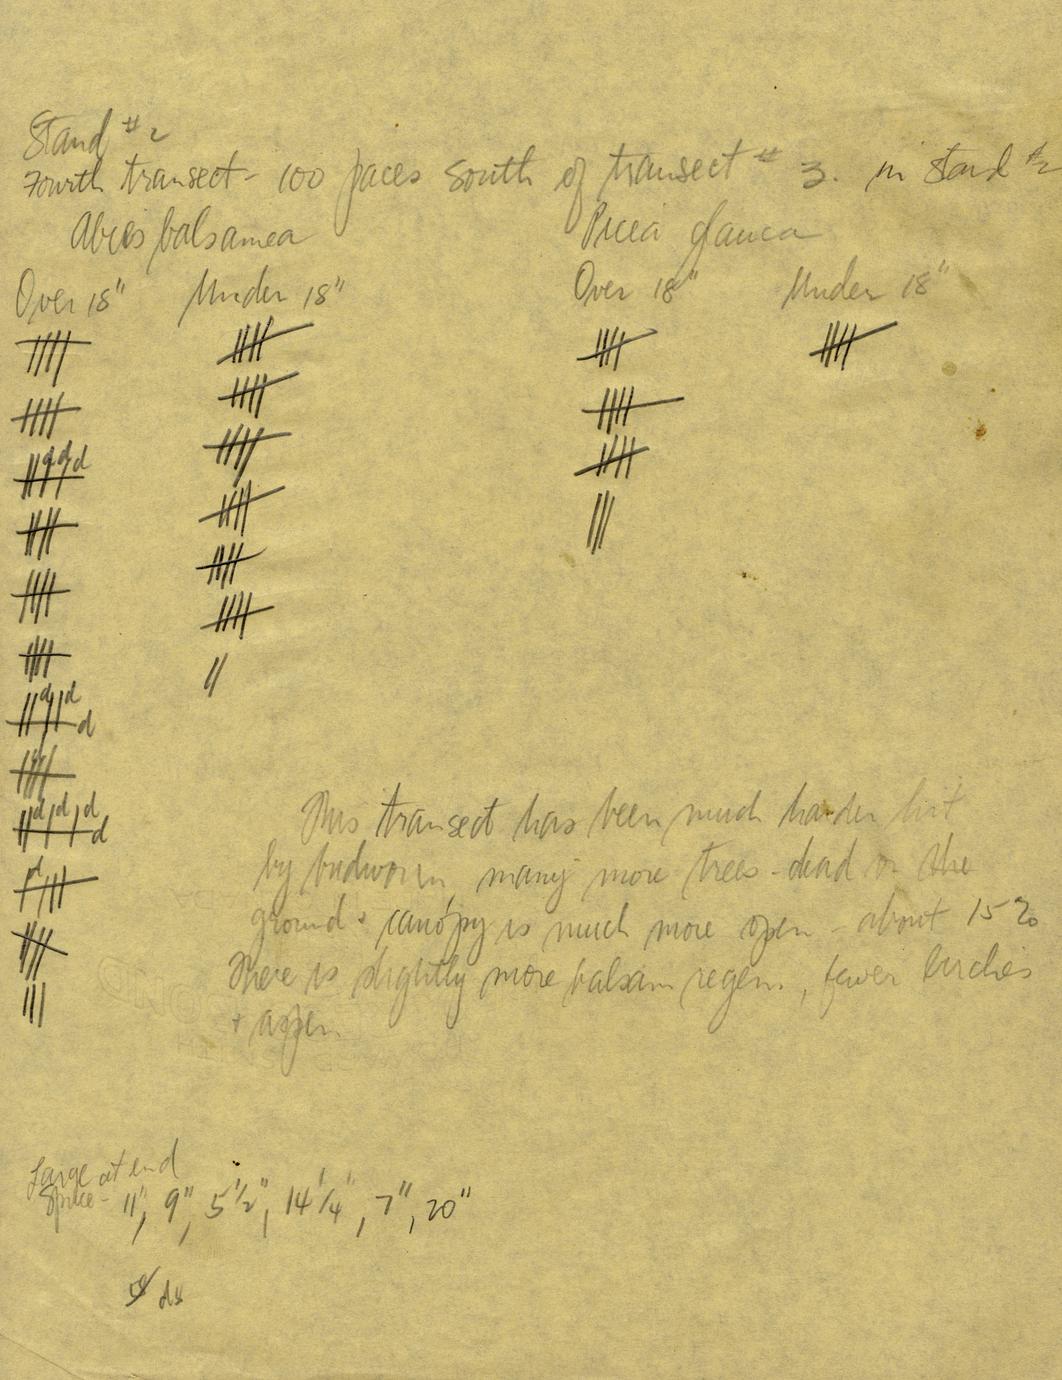 Stand #2
Fourth transect - 100 paces South of transect # 3. in Stand #2
Abies balsamea Picea glauca
Over 18" Under 18" Over 18" Under 18"
d d d
d d
d
d d d
d
d
This transect has been much harder hit
by budworm, many more trees - dead on the
ground + canopy is much more open - about 15%
There is slightly more balsam regen., fewer birches
+ aspen.
Large at end
Spruce - 11", 9", 5 1/2", 14 1/4", 7", 20"